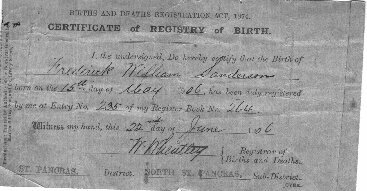 BIRTHS AND DEATHS REGISTRATION ACT, 1874.
CERTIFICATE of REGISTRY of BIRTH.
I, the undersigned, Do hereby certify that the Birth of
Frederick William Sanderson
born on the 15th day of May 1906 has been duly registered
by me at Entry No. 235 of my Register Book No. 264
Witness my hand, this 22nd day of June 1906
Registrar of
Births and Deaths.
ST. PANCRAS. District. NORTH ST. PANCRAS. Sub-District.